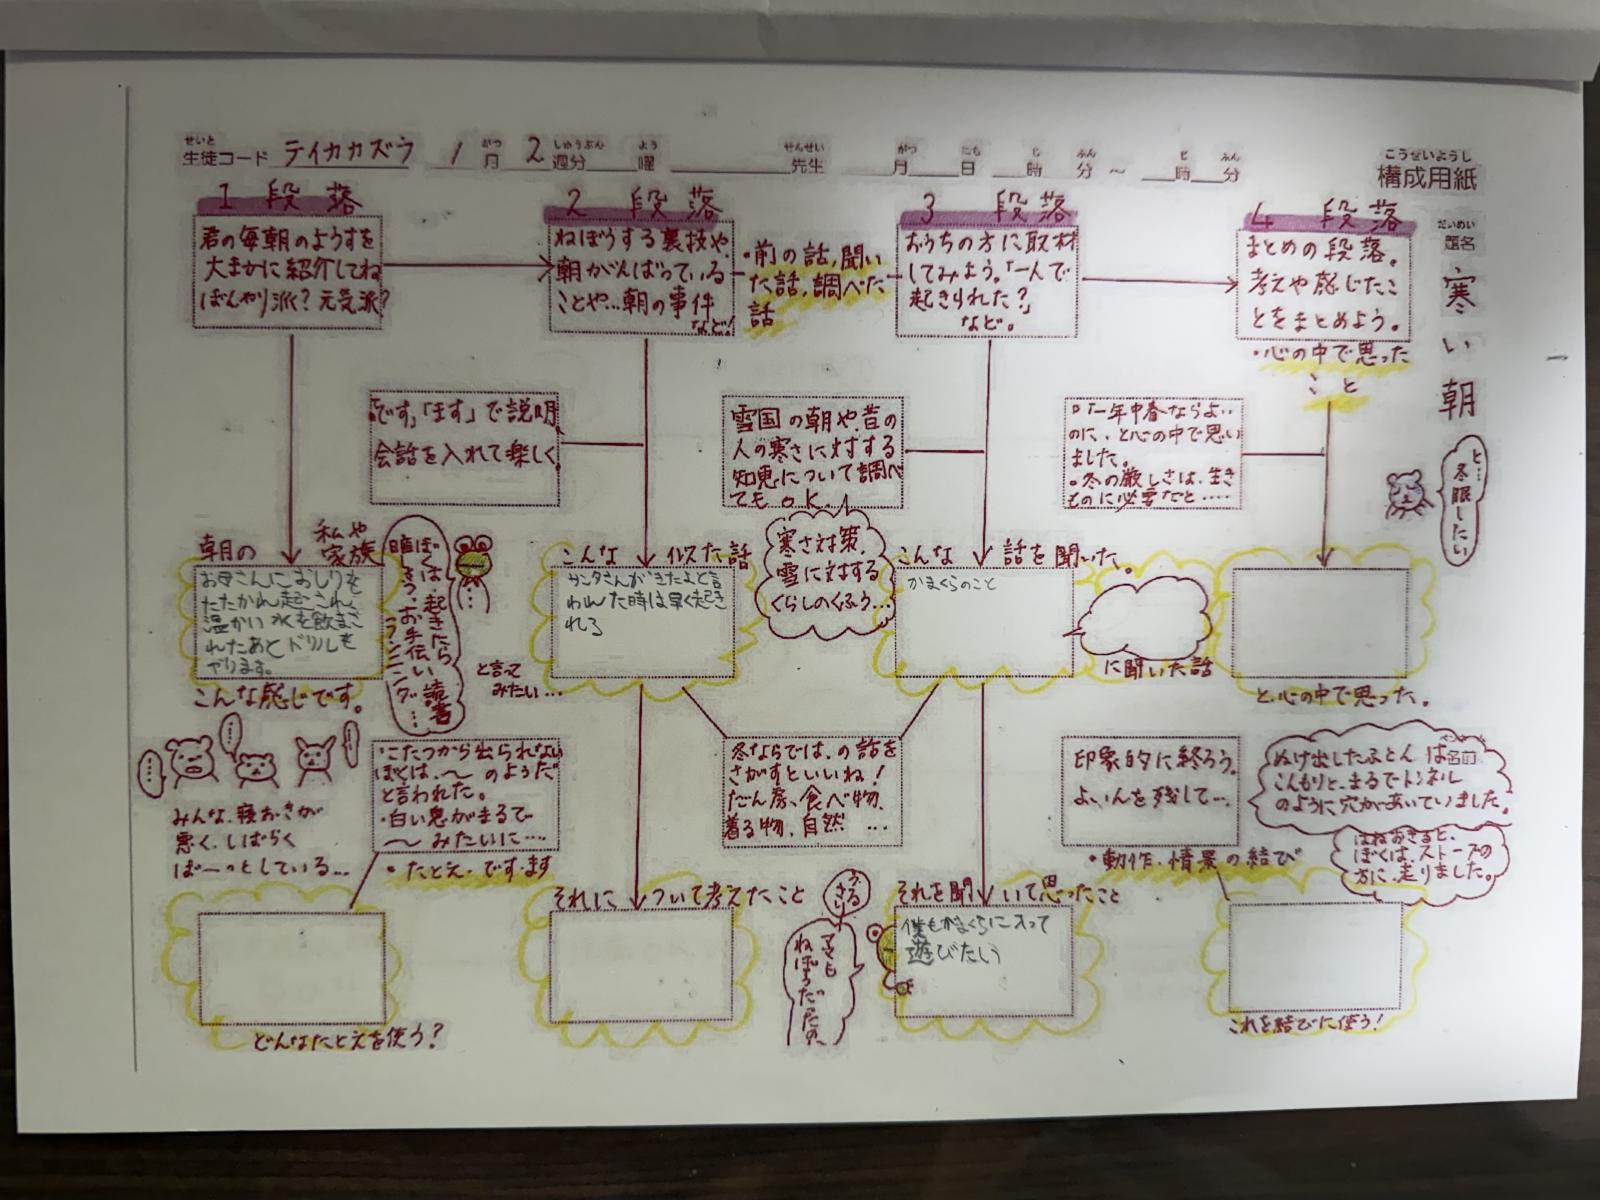 せいと
生徒コード テイカカズラ 1月 2週分 曜 先生 月 日 時 分 ～ 時 分
がつ しゅうぶん よう せんせい がつ にち じ ふん じ ふん
こうせいようし
構成用紙
だいめい
題名
寒い朝
1 段落
君の毎朝のようすを
大まかに紹介してね
ぼんやり派?元気派?
2 段落
ねぼうする裏技や、
朝がんばっている
ことや…朝の事件
など!
・前の話,聞い
た話,調べた
話
3 段落
おうちの方に取材
してみよう。「一人で
起きられた?」
など。
4 段落
まとめの段落。
考えや感じたこ
とをまとめよう。
・心の中で思った
こと
「です」「ます」で説明
会話を入れて楽しく
雪国の朝や、昔の
人の寒さに対する
知恵について調べ
てもOK。
・「一年中春ならよい
のに」と心の中で思い
ました。
・冬の厳しさは、生き
ものに必要だと……
と…冬眠したい
朝の 私や
家族
お母さんにおしりを
たたかれ起こされ、
温かい水を飲まさ
れたあとドリルを
やります。
こんな感じです。
ぼくは起きたら
暗しょう、お手伝い、読書
ランニングダ…
…
と言って
みたい…
こんな 似た話
サンタさんがきたよと言
われた時は早く起き
れる
寒さ対策、
雪に対する
くらしのくふう…
こんな 話を聞いた。
かまくらのこと
に聞いた話
と、心の中で思った。
みんな、寝おきが
悪く、しばらく
ぼーっとしている…
・こたつから出られない
ぼくは、～のようだ
と言われた。
・白い息がまるで
～みたいに……
・たとえ・です・ます
冬ならでは、の話を
さがすといいね!
だん房、食べ物、
着る物、自然 …
印象的に終ろう。
よいんを残して…
・動作・情景の結び
ぬけ出したふとんは
名前
こんもりと、まるでトンネル
のように穴があいていました。
はねおきると、
ぼくは、ストーブの
方に、走りました。
どんなたとえを使う?
それに ついて考えたこと
うるさい
ママも
ねぼうだったの、
それを聞いて思ったこと
僕もかまくらに入って
遊びたい
これを結びに使う!